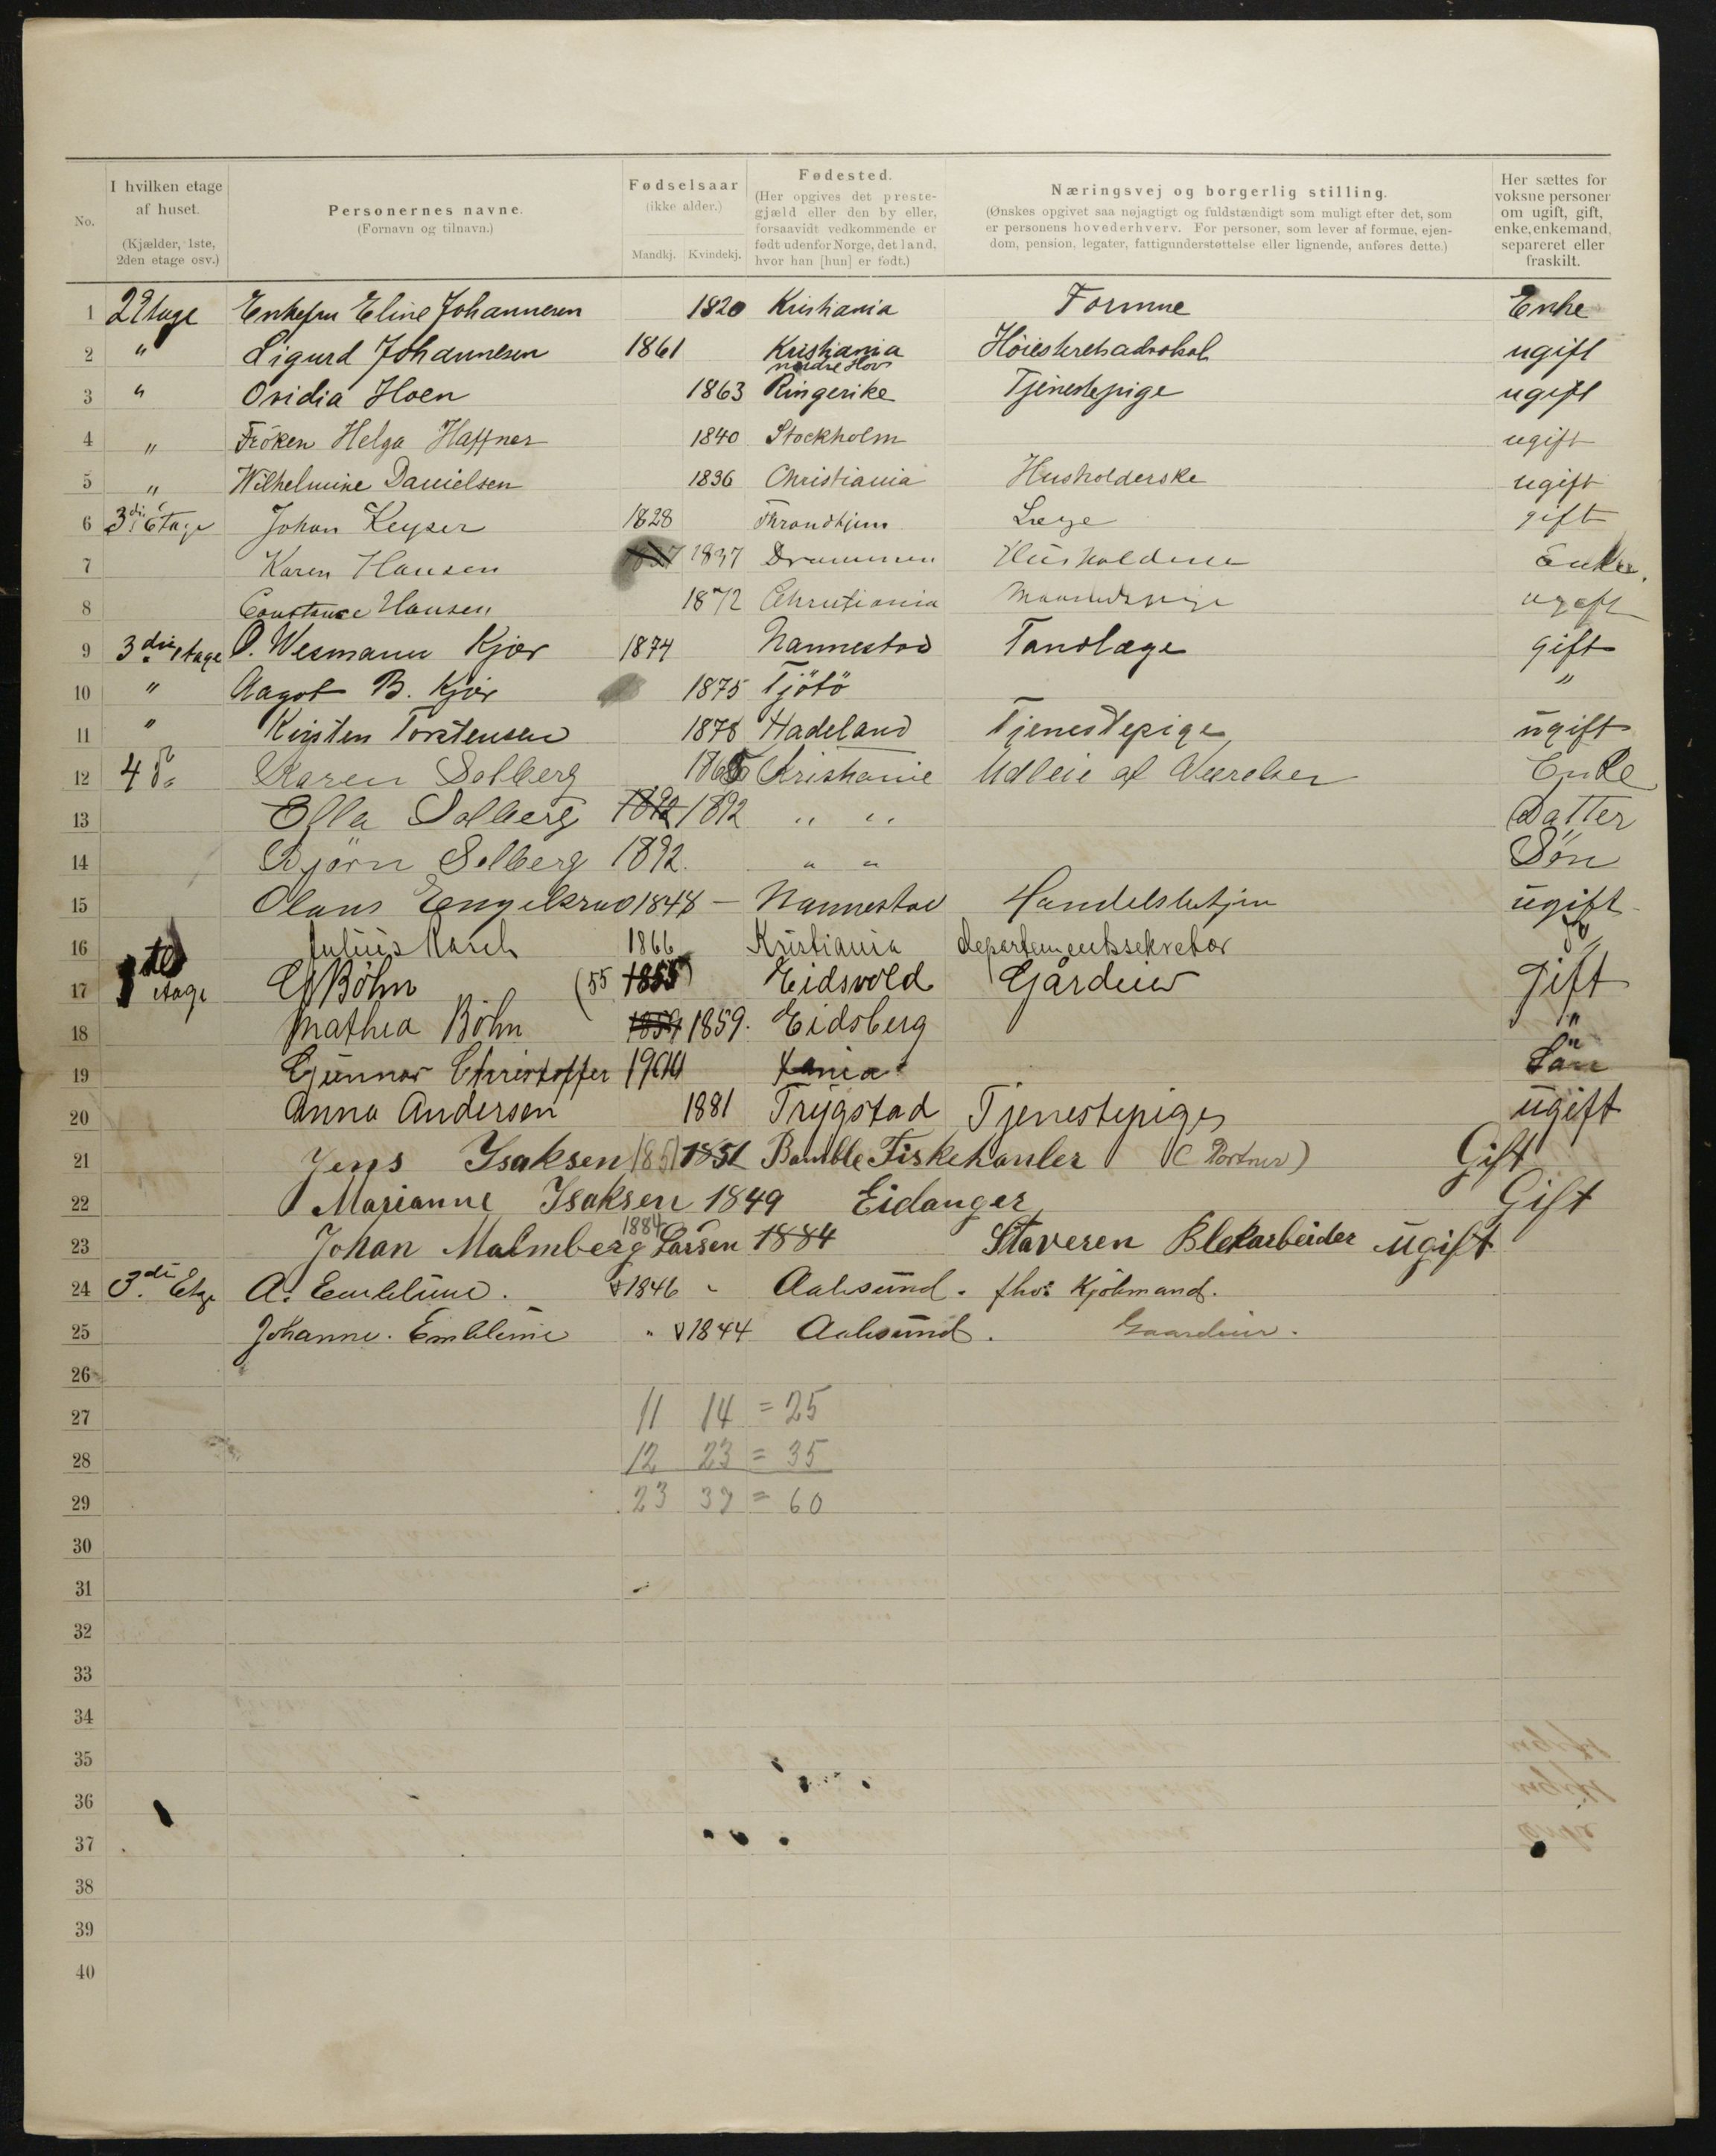 No.
I hvilken etage af huset. (Kjælder, 1ste, 2den etage osv.)
Personernes navne. (Fornavn og tilnavn.)
Fødselsaar (ikke alder.) Mandkj. Kvindekj.
Fødested. (Her opgives det prestegjæld eller den by eller, forsaavidt vedkommende er født udenfor Norge, det land, hvor han [hun] er født.)
Næringsvej og borgerlig stilling. (Ønskes opgivet saa nøjagtigt og fuldstændigt som muligt efter det, som er personens hovederhverv. For personer, som lever af formue, ejendom, pension, legater, fattigunderstøttelse eller lignende, anføres dette.)
Her sættes for voksne personer om ugift, gift, enke, enkemand, separeret eller fraskilt.
1 2 Etage Enkefru Eline Johannesen 1820 Kristiania Formue Enke
2 " Sigurd Johannesen 1861 Kristiania Høiesteretsadvokat ugift
3 " Ovidia Hoen 1863 nordre Hov Ringerike Tjenestepige ugift
4 " Frøken Helga Haffner 1840 Stockholm ugift
5 " Wilhelmine Danielsen 1836 Christiania Husholderske ugift
6 3die Etage Johan Keyser 1828 Throndhjem Læge gift
7 Karen Hansen 1837 1837 Drammen Husholderske Enke.
8 Constance Hansen 1872 Christiania ugift
9 3die etage O. Wesmann Kjær 1874 Nannestad Tandlæge gift
10 " Aagot B. Kjær 1875 Tjötö "
11 " Kirsten Torstensen 1878 Hadeland Tjenestepige ugift
12 4 do Karen Solberg 1865 Kristiania Udleie af Værelser Enke
13 Ella Solberg 1892 1892 " " Datter
14 Bjørn Solberg 1892. " " Søn
15 Olaus Engelsrud 1848 - Nannestad Handelsbetjen ugift
16 Julius Rasch 1866 Kristiania departementssekretær do
17 1ste etage Böhn (55 1855) Eidsvold Gårdeier Gift
18 Mathea Böhn 1859 1859. Eidsberg "
19 Gunnar Christoffer 1900 Xania Sön
20 Anna Andersen 1881 Trygstad Tjenestepige ugift
21 Jens Isaksen 1851 1851 Bamble Fiskehanler (Portner) Gift
22 Marianne Isaksen 1849 Eidanger Gift
23 Johan Malmberg Larsen 1884 1884 Staveren Blekarbeider ugift
24 3die Etge A. Emblem. 1846 " Aalesund. fhv: Kjöbmand.
25 Johanne. Emblem " 1844 Aalesund. Gaardeier.
26
27 11 14 = 25
28 12 23 = 35
29 23 37 = 60
30
31
32
33
34
35
36
37
38
39
40